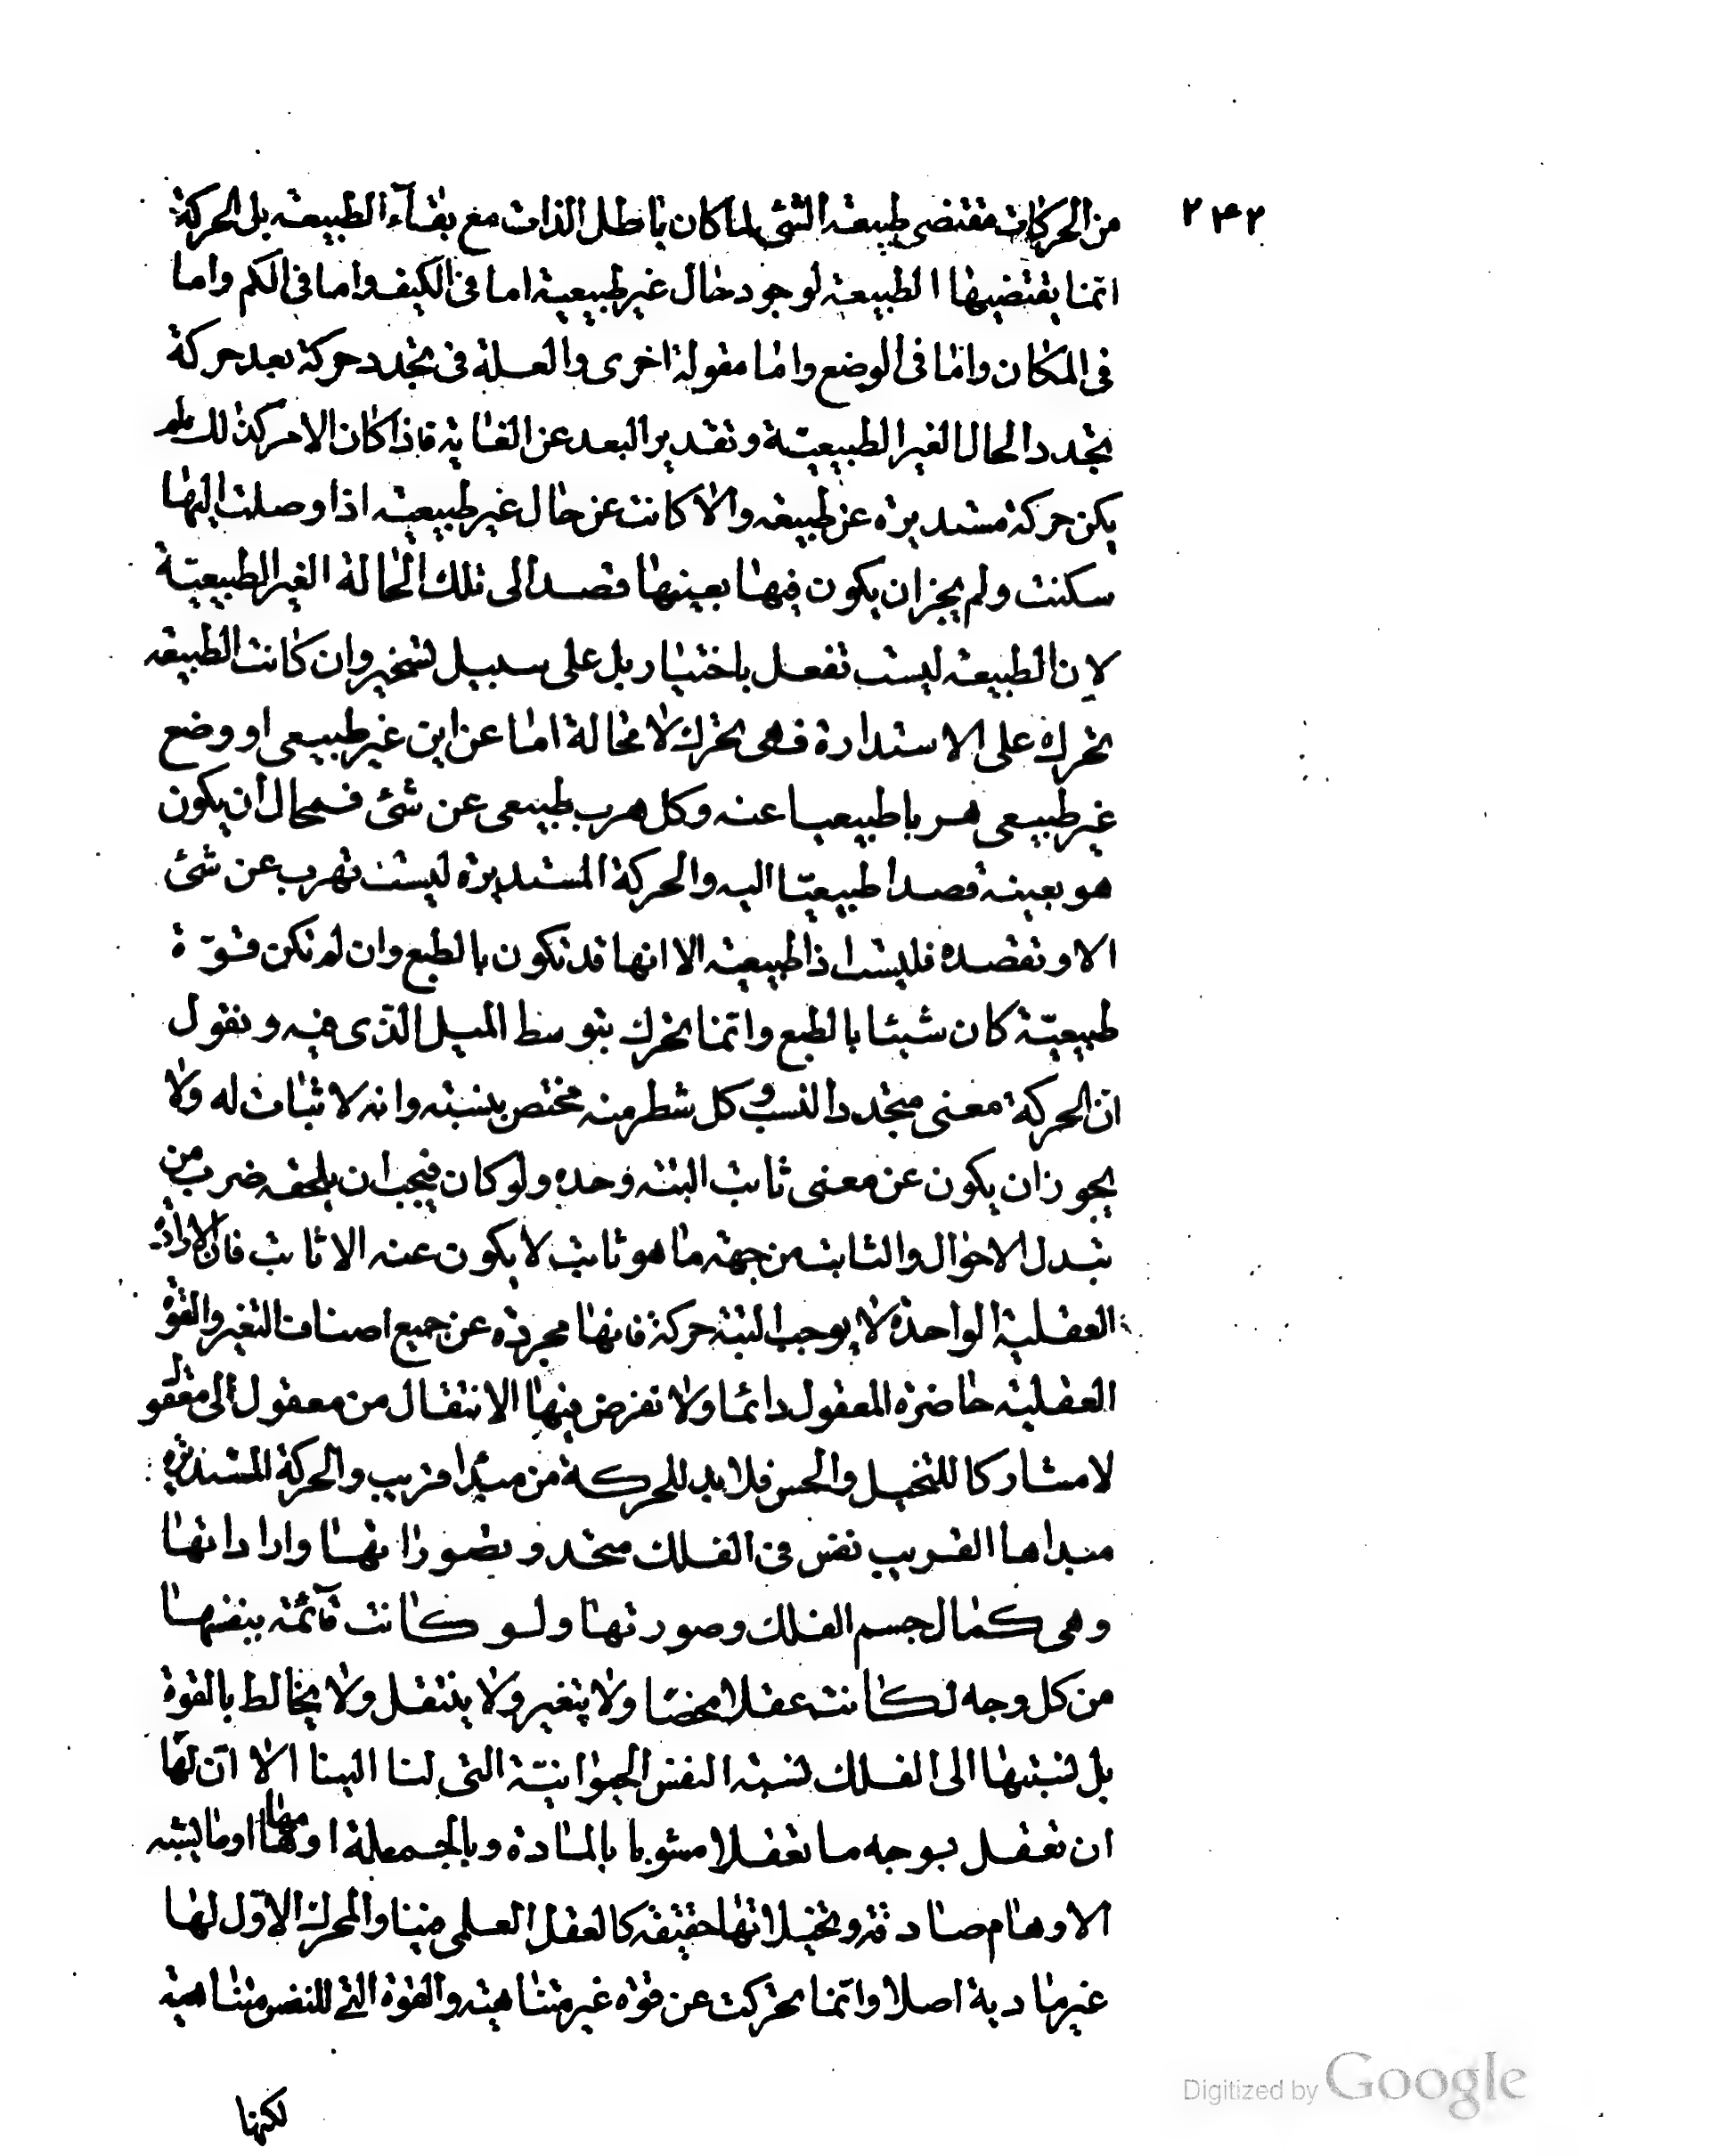 ٢٤٢
من الحركات مقتضى طبيعة الشئ لما كان باطل الذات مع بقآء الطبيعة بل الحركة
انّما يقتضيها الطبيعة لوجود حال غير طبيعية اما فى الكيف واما فى الكم واما
فى المكان وامّا فى الوضع واما مقولة اخرى والعلة فى تجدد حركة بعد حركة
تجدد الحال الغير الطبيعيّة وتقدير البعد عن الغاية فاذا كان الامر كذلك لم
يكن حركة مستديرة عن طبيعة والا كانت عن حال غير طبيعية اذا وصلت اليها
سكنت ولم يجز ان يكون فيها بعينها قصد الى تلك الحالة الغير الطبيعيّة
لان الطبيعة ليست تفعل باختيار بل على سبيل تسخير وان كانت الطبيعة
تحرك على الاستدارة فهى تحرك لا محالة اما عن اين غير طبيعى او وضع
غير طبيعى هربا طبيعيا عنه وكل هرب طبيعى عن شئ فمحال ان يكون
هو بعينه قصدا طبيعيّا اليه والحركة المستديرة ليست تهرب عن شئ
الا وتقصده فليست اذا طبيعية الا انها قد تكون بالطبع وان لم تكن قوّة
طبيعيّة كان شيئا بالطبع وانّما تحرك بتوسط الميل الّذى فيه ونقول
انّ الحركة معنى متجدد النسب وكل شطر منه مختص بنسبة وانه لا ثبات له ولا
يجوز ان يكون عن معنى ثابت البتة وحده ولو كان فيجب ان يلحقه ضرب من
تبدل الاحوال والثابت من جهة ما هو ثابت لا يكون عنه الا ثابت فان الارادة
العقلية الواحدة لا يوجب البتة حركة فانها مجردة عن جميع اصناف التغير والقوة
العقلية حاضرة المعقول دائما ولا تفرض فيها الانتقال من معقول الى معقول
لا مشاركا للتخيل والحس فلا بد للحركة من مبدا قريب والحركة المستديرة
مبداها القريب نفس فى الفلك متجدد تصوراتها واراداتها
وهى كمال جسم الفلك وصورتها ولو كانت قآئمة بنفسها
من كل وجه لكانت عقلا محضا ولا يتغير ولا ينتقل ولا يخالط بالقوة
بل نسبتها الى الفلك نسبة النفس الحيوانيّة التى لنا الينا الا انّ لها
ان تعقل بوجه ما تعقلا مشوبا بالمادة وبالجملة اوهامها او ما يشبه
الاوهام صادقة وتخيلاتها حقيقة كالعقل العملى فينا والمحرك الاوّل لها
غير مادية اصلا وانّما تحركت عن قوة غير متناهية والقوة التى للنفس متناهية
لكنها
Digitized by Google